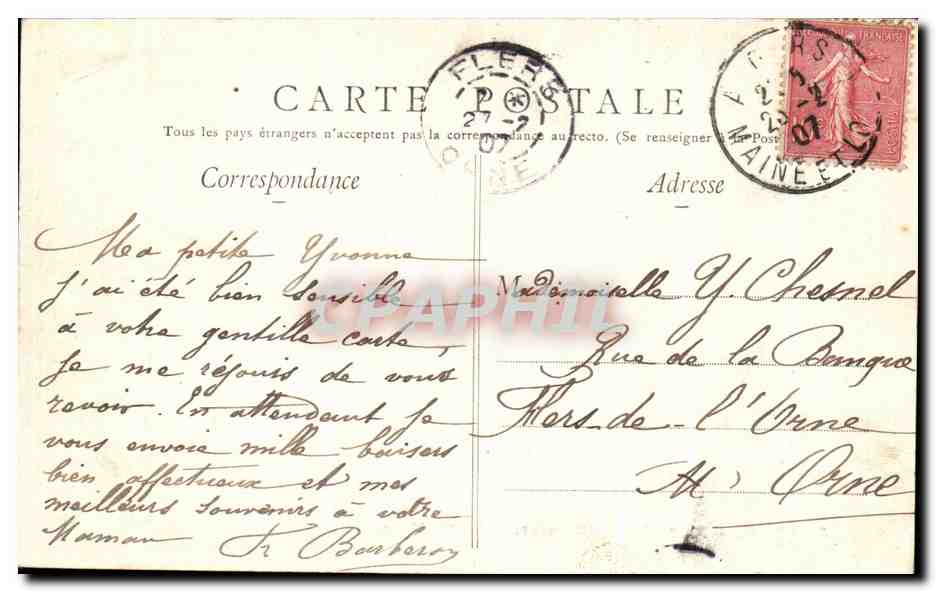 CARTE POSTALE
Tous les pays étrangers n'acceptent pas la correspondance au recto. (Se renseigner à la Post
Correspondance
Adresse
FLERS
27-2
07
ORNE
ANGERS
07
MAINE ET L
FRANÇAISE
Ma petite Yvonne
j'ai été bien sensible
à votre gentille carte,
Je me réjouis de vous
revoir. En attendant Je
vous envoie mille baisers
bien affectueux et mes
meilleurs souvenirs à votre
Maman
Barberon
Mademoiselle Y. Chesnel
Rue de la Banque
Flers-de-l'Orne
Orne
CPAPHIL